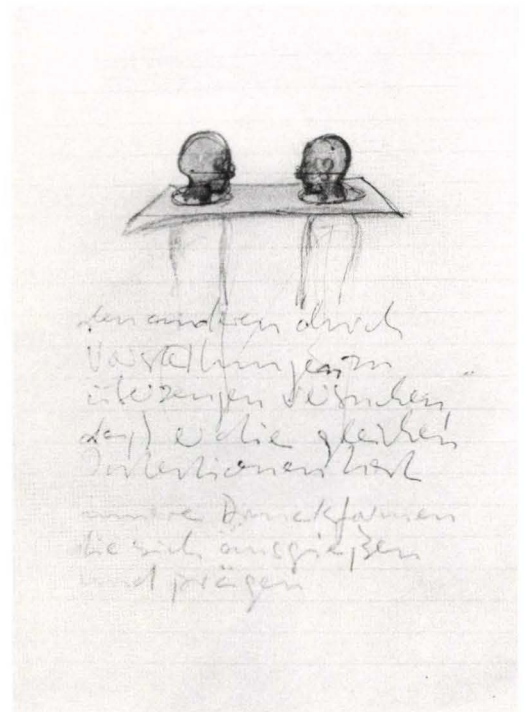 den anderen durch
Vorstellungen zu
überzeugen versuchen
daß er die gleichen
Intentionen hat
innere Denkformen
die sich ausgießen
und prägen